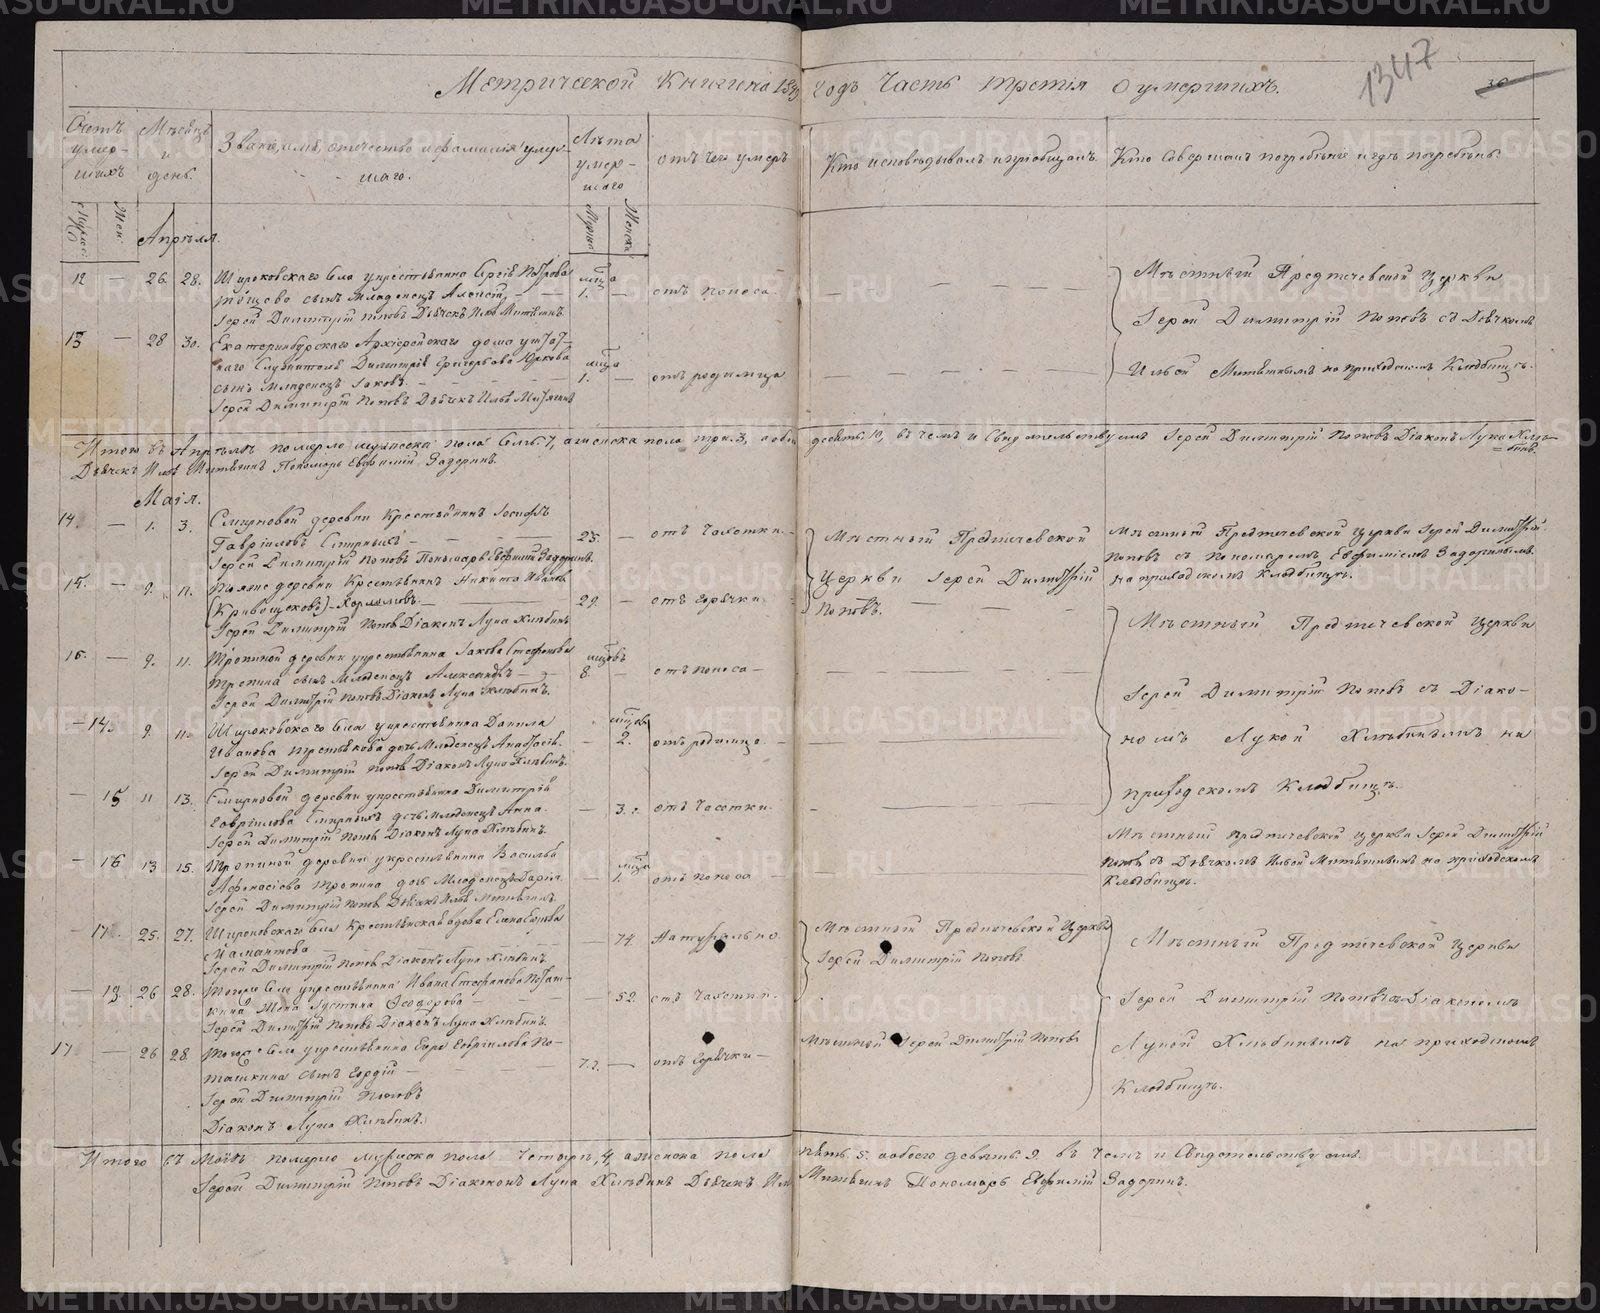 METRIKI.GASO-URAL.RU
1347
30
Метрической книги на 18 годъ Часть третія о умершихъ.
Счетъ умер-шихъ
Мѣсяцъ и день.
Званіе, имя, отечество и фамилія умер-шаго.
Лѣта умер-шаго
отъ чего умеръ
Кто исповѣдывалъ и пріобщалъ.
Кто совершалъ погребеніе и гдѣ погребены.
Мужес:
Жен:
Апрѣля.
12 — 26 28. Широковскаго села крестьянина Сергѣя Петрова
сынъ младенецъ Алексѣй
Іерей Димитрій Поповъ Дьячекъ Илья Митянинъ.
1. — отъ поноса.
Мѣстный Предтечевской Церкви
Іерей Димитрій Поповъ съ Дьячкомъ
на приходскомъ Кладбищѣ.
13 — 28 30. Екатеринбургскаго Архіерейскаго дома штат-
наго служителя Димитрія Григорьева
сынъ младенецъ Іаковъ.
Іерей Димитрій Поповъ Дьячекъ Илья
1. — отъ родимца
Итого въ Апрѣлѣ померло мужеска пола семь 7, а женска пола три. 3, а обоего десять 10, въ чемъ и свидѣтельствуемъ Іерей Димитрій Поповъ Діаконъ Лука Хлѣ-
бинъ.
Дьячекъ Илья Пономарь Евфимій Задоринъ.
Маія.
14. — 1. 3. Смирновой деревни крестьянинъ Іосифъ
Гавріиловъ Смирныхъ
Іерей Димитрій Поповъ Пономарь Евфимій Задоринъ.
23. — отъ чахотки.
Мѣстный Предтечевской
Церкви Іерей Димитрій
Поповъ.
Мѣстный Предтечевской Церкви Іерей Димитрій
Поповъ съ Пономаремъ Евфиміемъ Задоринымъ
на приходскомъ Кладбищѣ.
15. — 9. 11. деревни Крестьянинъ Никита Ивановъ
(Кривощековъ)
Іерей Димитрій Поповъ Діаконъ Лука Хлѣбинъ
29. — отъ горячки
Мѣстный Предтечевской Церкви
Іерей Димитрій Поповъ съ Діако-
номъ Лукой Хлѣбинымъ на
приходскомъ Кладбищѣ.
16. — 9. 11. Тропиной деревни крестьянина Іакова Стефанова
Тропина сынъ младенецъ Александръ
Іерей Димитрій Поповъ Діаконъ Лука Хлѣбинъ.
8. — отъ поноса —
— 14. 9. 11. Широковскаго села крестьянина Данила
Иванова Третьякова дочь младенецъ Анастасія.
Іерей Димитрій Поповъ Діаконъ Лука Хлѣбинъ.
— 2. отъ родимца
— 15 11 13. Смирновой деревни крестьянина Димитрія
Гавріилова Смирныхъ дочь младенецъ Анна.
Іерей Димитрій Поповъ Діаконъ Лука Хлѣбинъ.
— 3. отъ чахотки.
— 16 13 15. Тропиной деревни крестьянина Василья
Афанасіева Тропина дочь младенецъ Дарія.
Іерей Димитрій Поповъ Дьячекъ Илья
1. отъ поноса —
Мѣстный Предтечевской Церкви Іерей Димитрій
Поповъ съ Дьячкомъ Ильей на приходскомъ
Кладбищѣ.
— 17. 25. 27. Широковскаго села Крестьянская вдова Елена
Мамантова
Іерей Димитрій Поповъ Діаконъ Лука Хлѣбинъ.
— 74. Натурально.
Мѣстный Предтечевской Церкви
Іерей Димитрій Поповъ
Мѣстный Предтечевской Церкви
Іерей Димитрій Поповъ съ Діакономъ
Лукой Хлѣбинымъ на приходскомъ
Кладбищѣ.
— 18 26 28. Тогоже села крестьянина Ивана Стефанова Поташ-
кина жена Іустина Ѳеодорова
Іерей Димитрій Поповъ Діаконъ Лука Хлѣбинъ.
— 52. отъ чахотки.
17 — 26 28 Тогоже села крестьянина Гавріилова По-
ташкина сынъ
Іерей Димитрій Поповъ
Діаконъ Лука Хлѣбинъ.
72. — отъ горячки —
Мѣстный Іерей Димитрій Поповъ
Итого въ Маѣ померло мужеска пола четыре, 4, а женска пола пять. 5. а обоего девять. 9. въ чемъ и свидѣтельствуемъ.
Іерей Димитрій Поповъ Діаконъ Лука Хлѣбинъ Дьячекъ Илья Пономарь Евфимій Задоринъ.